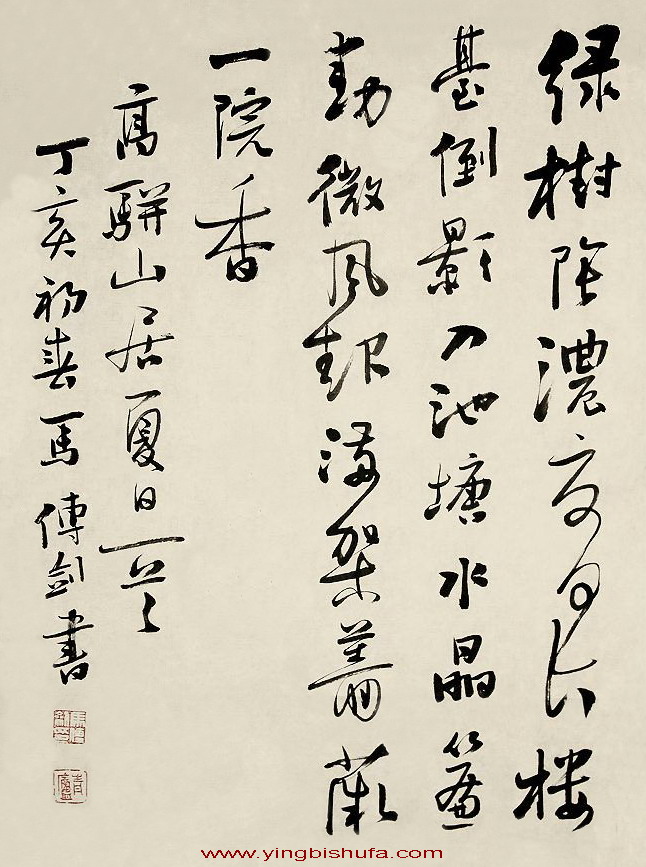 绿樹陰濃夏日长楼
臺倒影入池塘水晶簾
動微風起满架薔薇
一院香
高駢山居夏日一首
丁亥初春馬傅剑書
www.yingbishufa.com